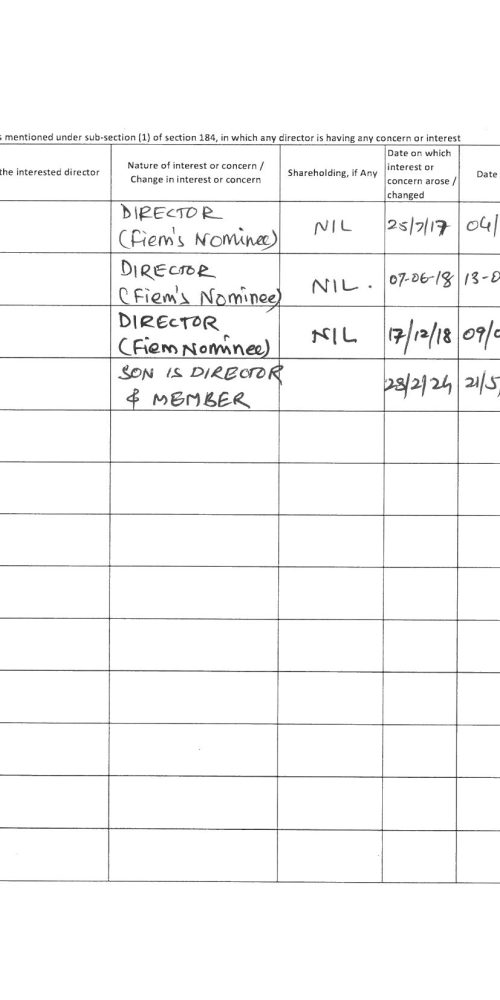 s mentioned under sub-section (1) of section 184, in which any director is having any concern or interest
the interested director
Nature of interest or concern /
Change in interest or concern
Shareholding, if Any
Date on which
interest or
concern arose /
changed
Date
DIRECTOR
(Fiem's Nominee)
NIL
25/7/17
04/
DIRECTOR
(Fiem's Nominee)
NIL.
07-06-18
13-0
DIRECTOR
(Fiem Nominee)
NIL
17/12/18
09/0
SON IS DIRECTOR
& MEMBER
23/2/24
21/5/